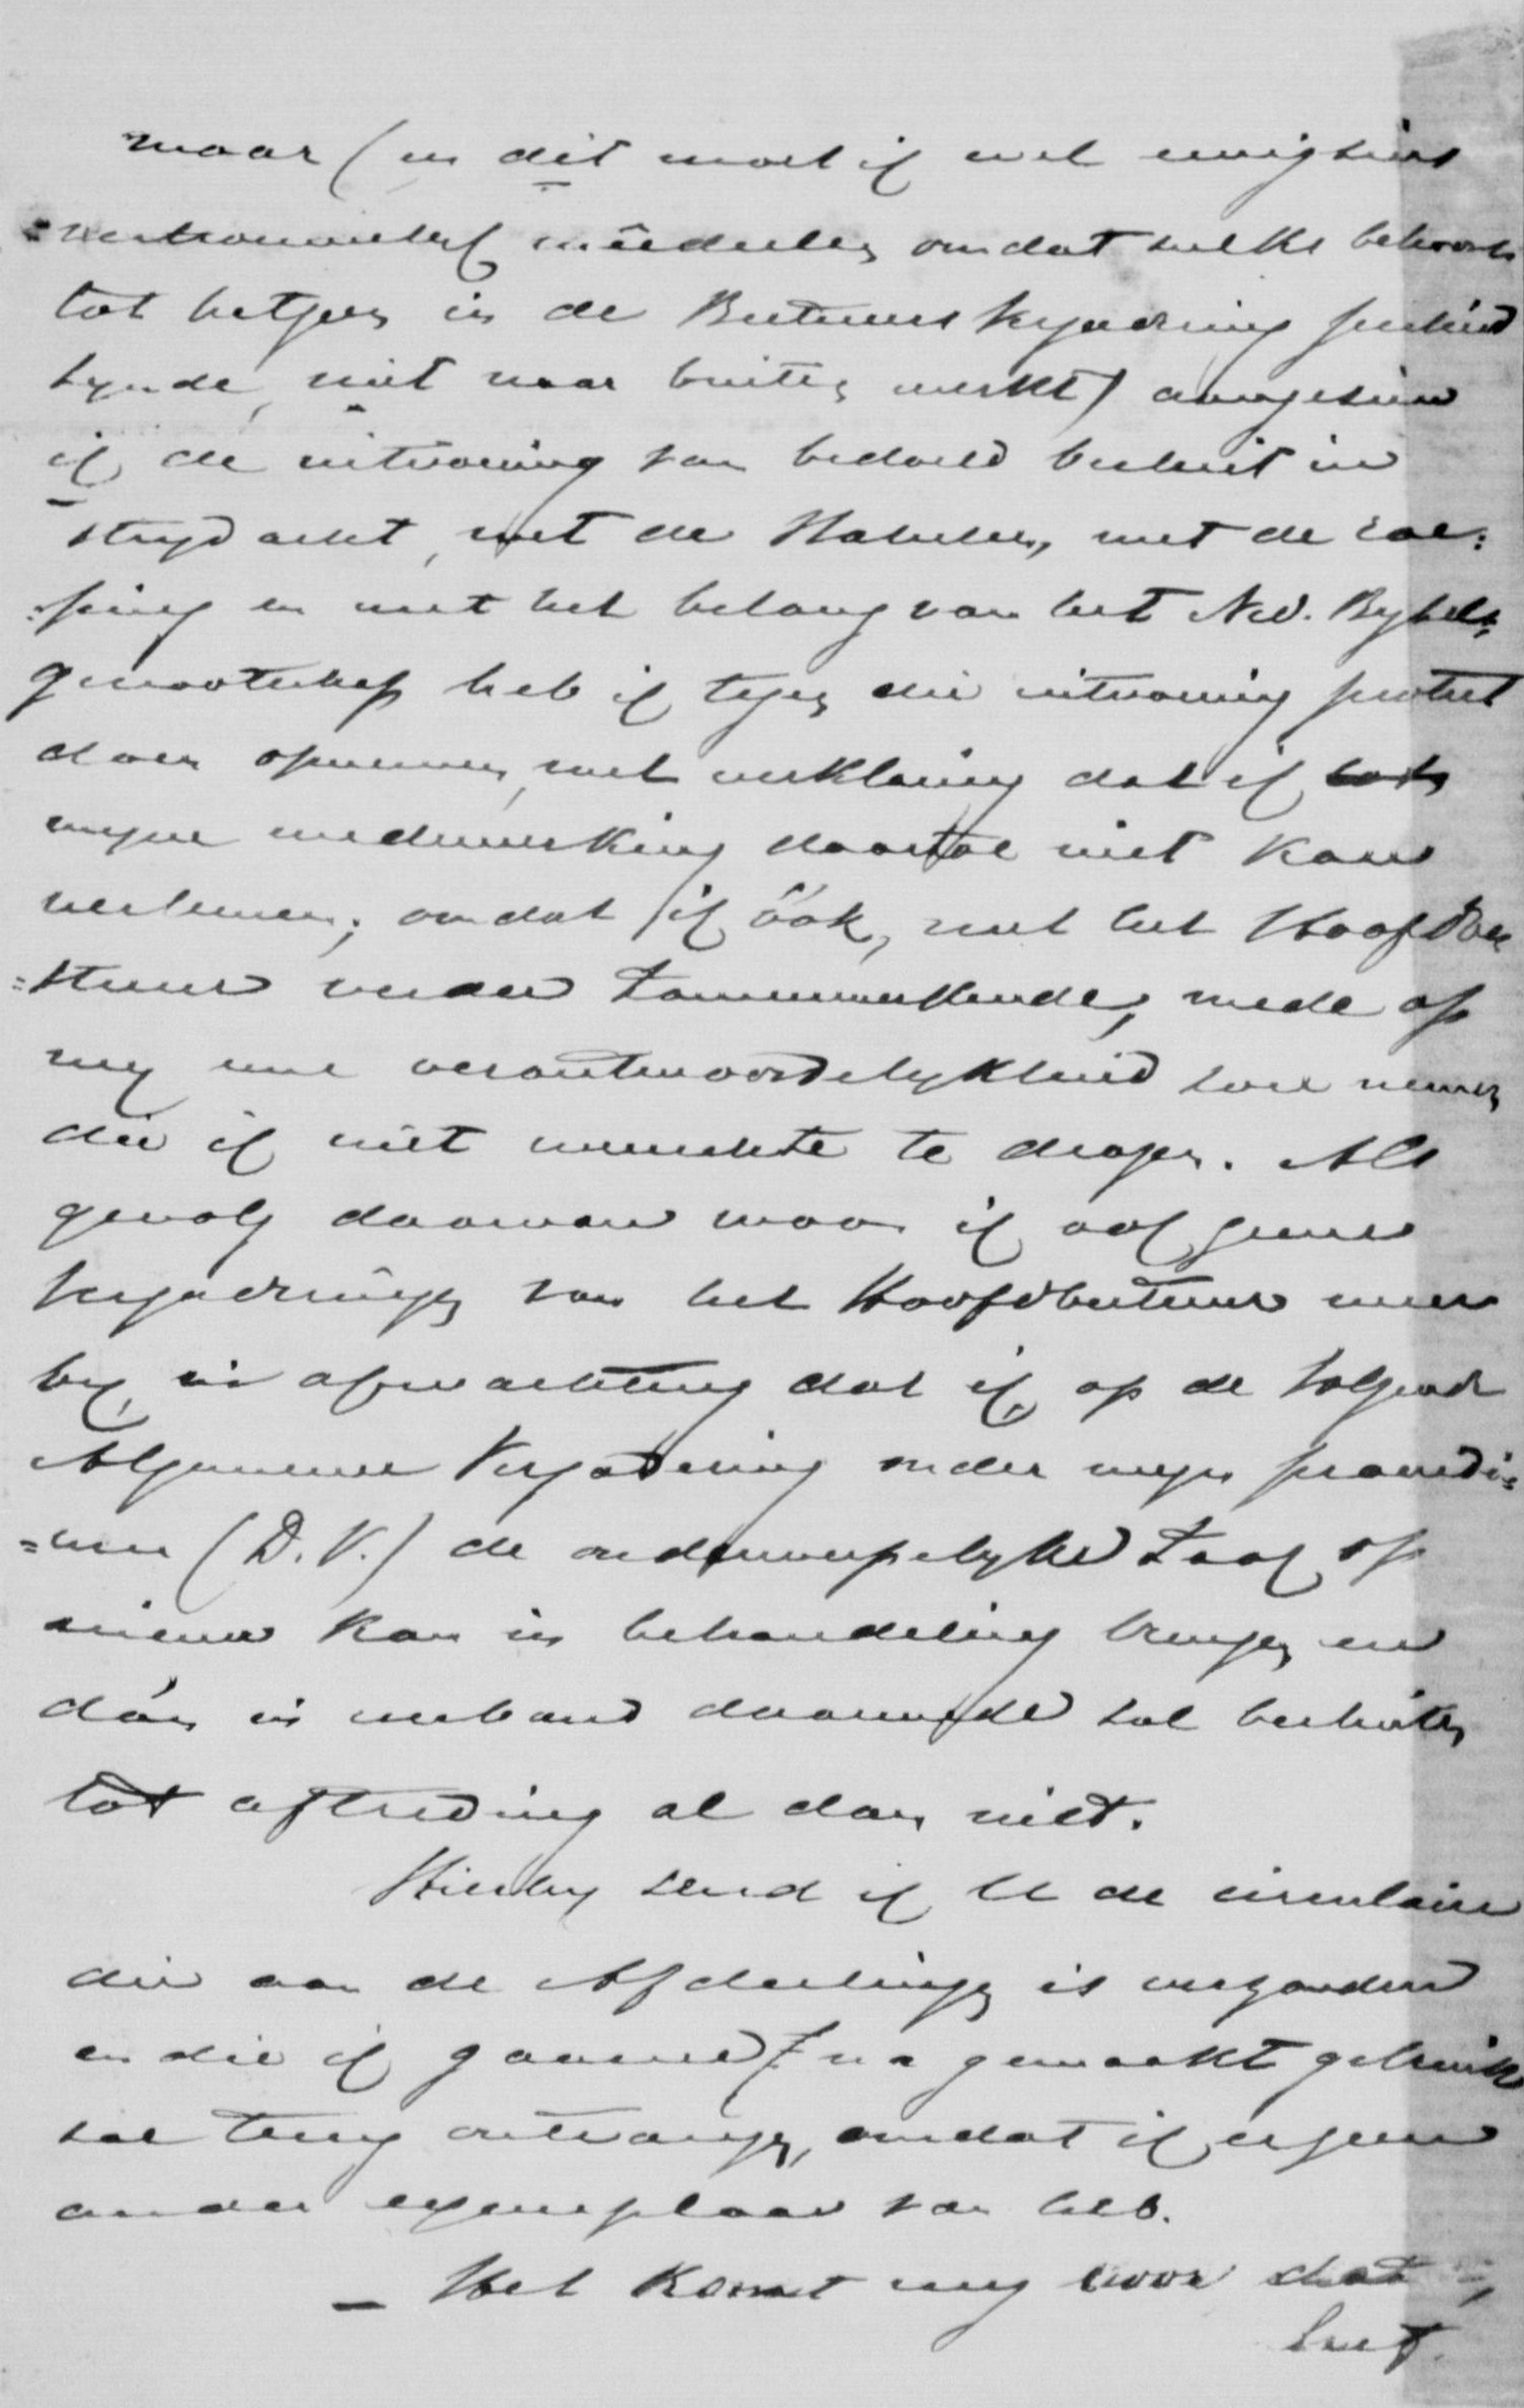 maar (en dit moet ik wel eenigszins
vertrouwelijk mêedeelen omdat zulks behoort
tot hetgeen in de Bestuursvergadering geschied
zynde, niet naar buiten werkt) aangezien
ik de uitvoering van bedoeld besluit in
strijd acht, met de Statuten, met de roe:
:ping en met het belang van het Ned. Bybel:
genootschap heb ik tegen die uitvoering protest
doen opnemen, met verklaring dat ik
myne medewerking daartoe niet kan
verleenen; omdat ik óók, met het Hoofdbe
=stuur verder samenwerkende, mede op
my eene verantwoordelykheid zou nemen
die ik niet wenschte te dragen. Als
gevolg daarvan woon ik ook geene
vergaderingen van het Hoofdbestuur meer
by, in afwachting dat ik op de volgende
Algemeene Vergadering onder myn praesidi=
=um (D.V.) de onderwerpelyke zaak op
nieuw kan in behandeling brengen en
dán in verband daarmede zal besluiten
tot aftreding al dan niet.
Hierby zend ik U de circulaire
die aan de Afdeelingen is verzonden
en die ik gaarne na gemaakt gebruik
zal terug ontvangen, omdat ik er geen
ander exemplaar van heb.
— Het komt my voor dat,
het